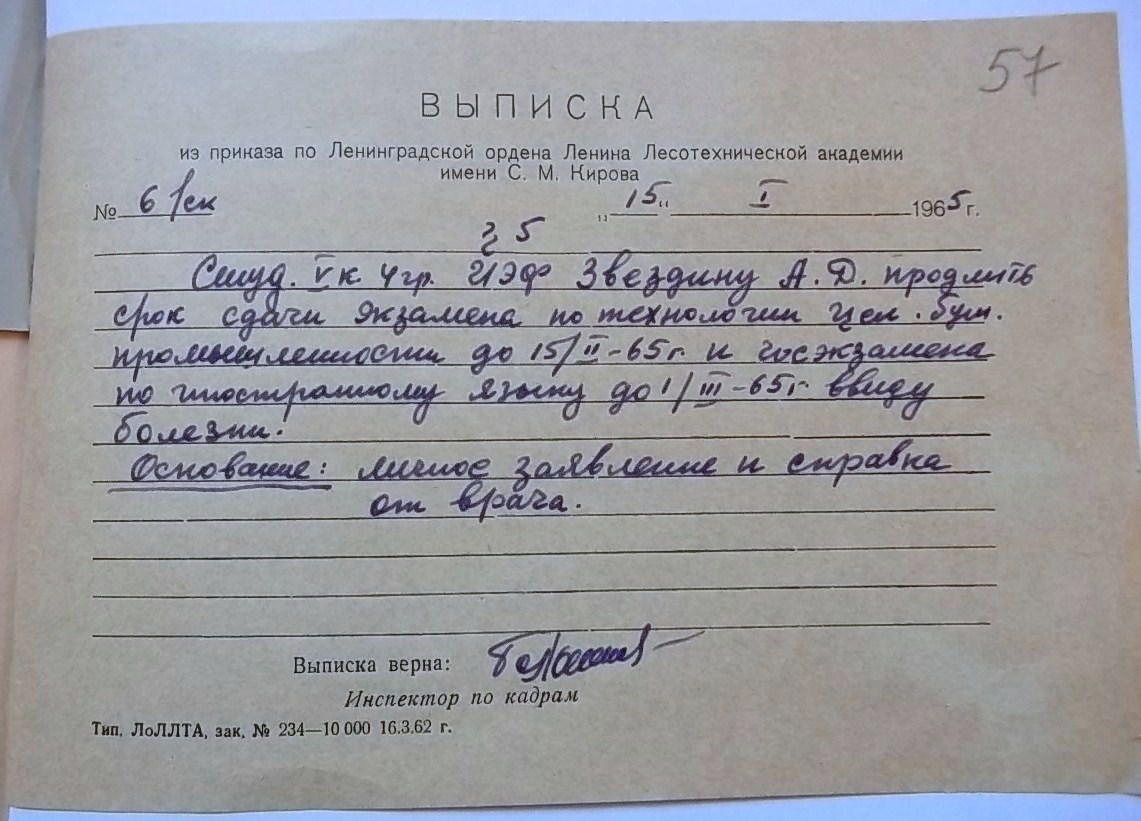 57
ВЫПИСКА
из приказа по Ленинградской ордена Ленина Лесотехнической академии
имени С. М. Кирова
№ 6/ск „15" I 1965 г.
§ 5
Студ. V к. 4 гр. ИЭФ Звездину А. Д. продлить
срок сдачи экзамена по технологии цел. бум.
промышленности до 15/II-65 г. и госэкзамена
по иностранному языку до 1/III-65 г. ввиду
болезни.
Основание: личное заявление и справка
от врача.
Выписка верна:
Инспектор по кадрам
Тип. ЛоЛЛТА, зак. № 234—10 000 16.3.62 г.